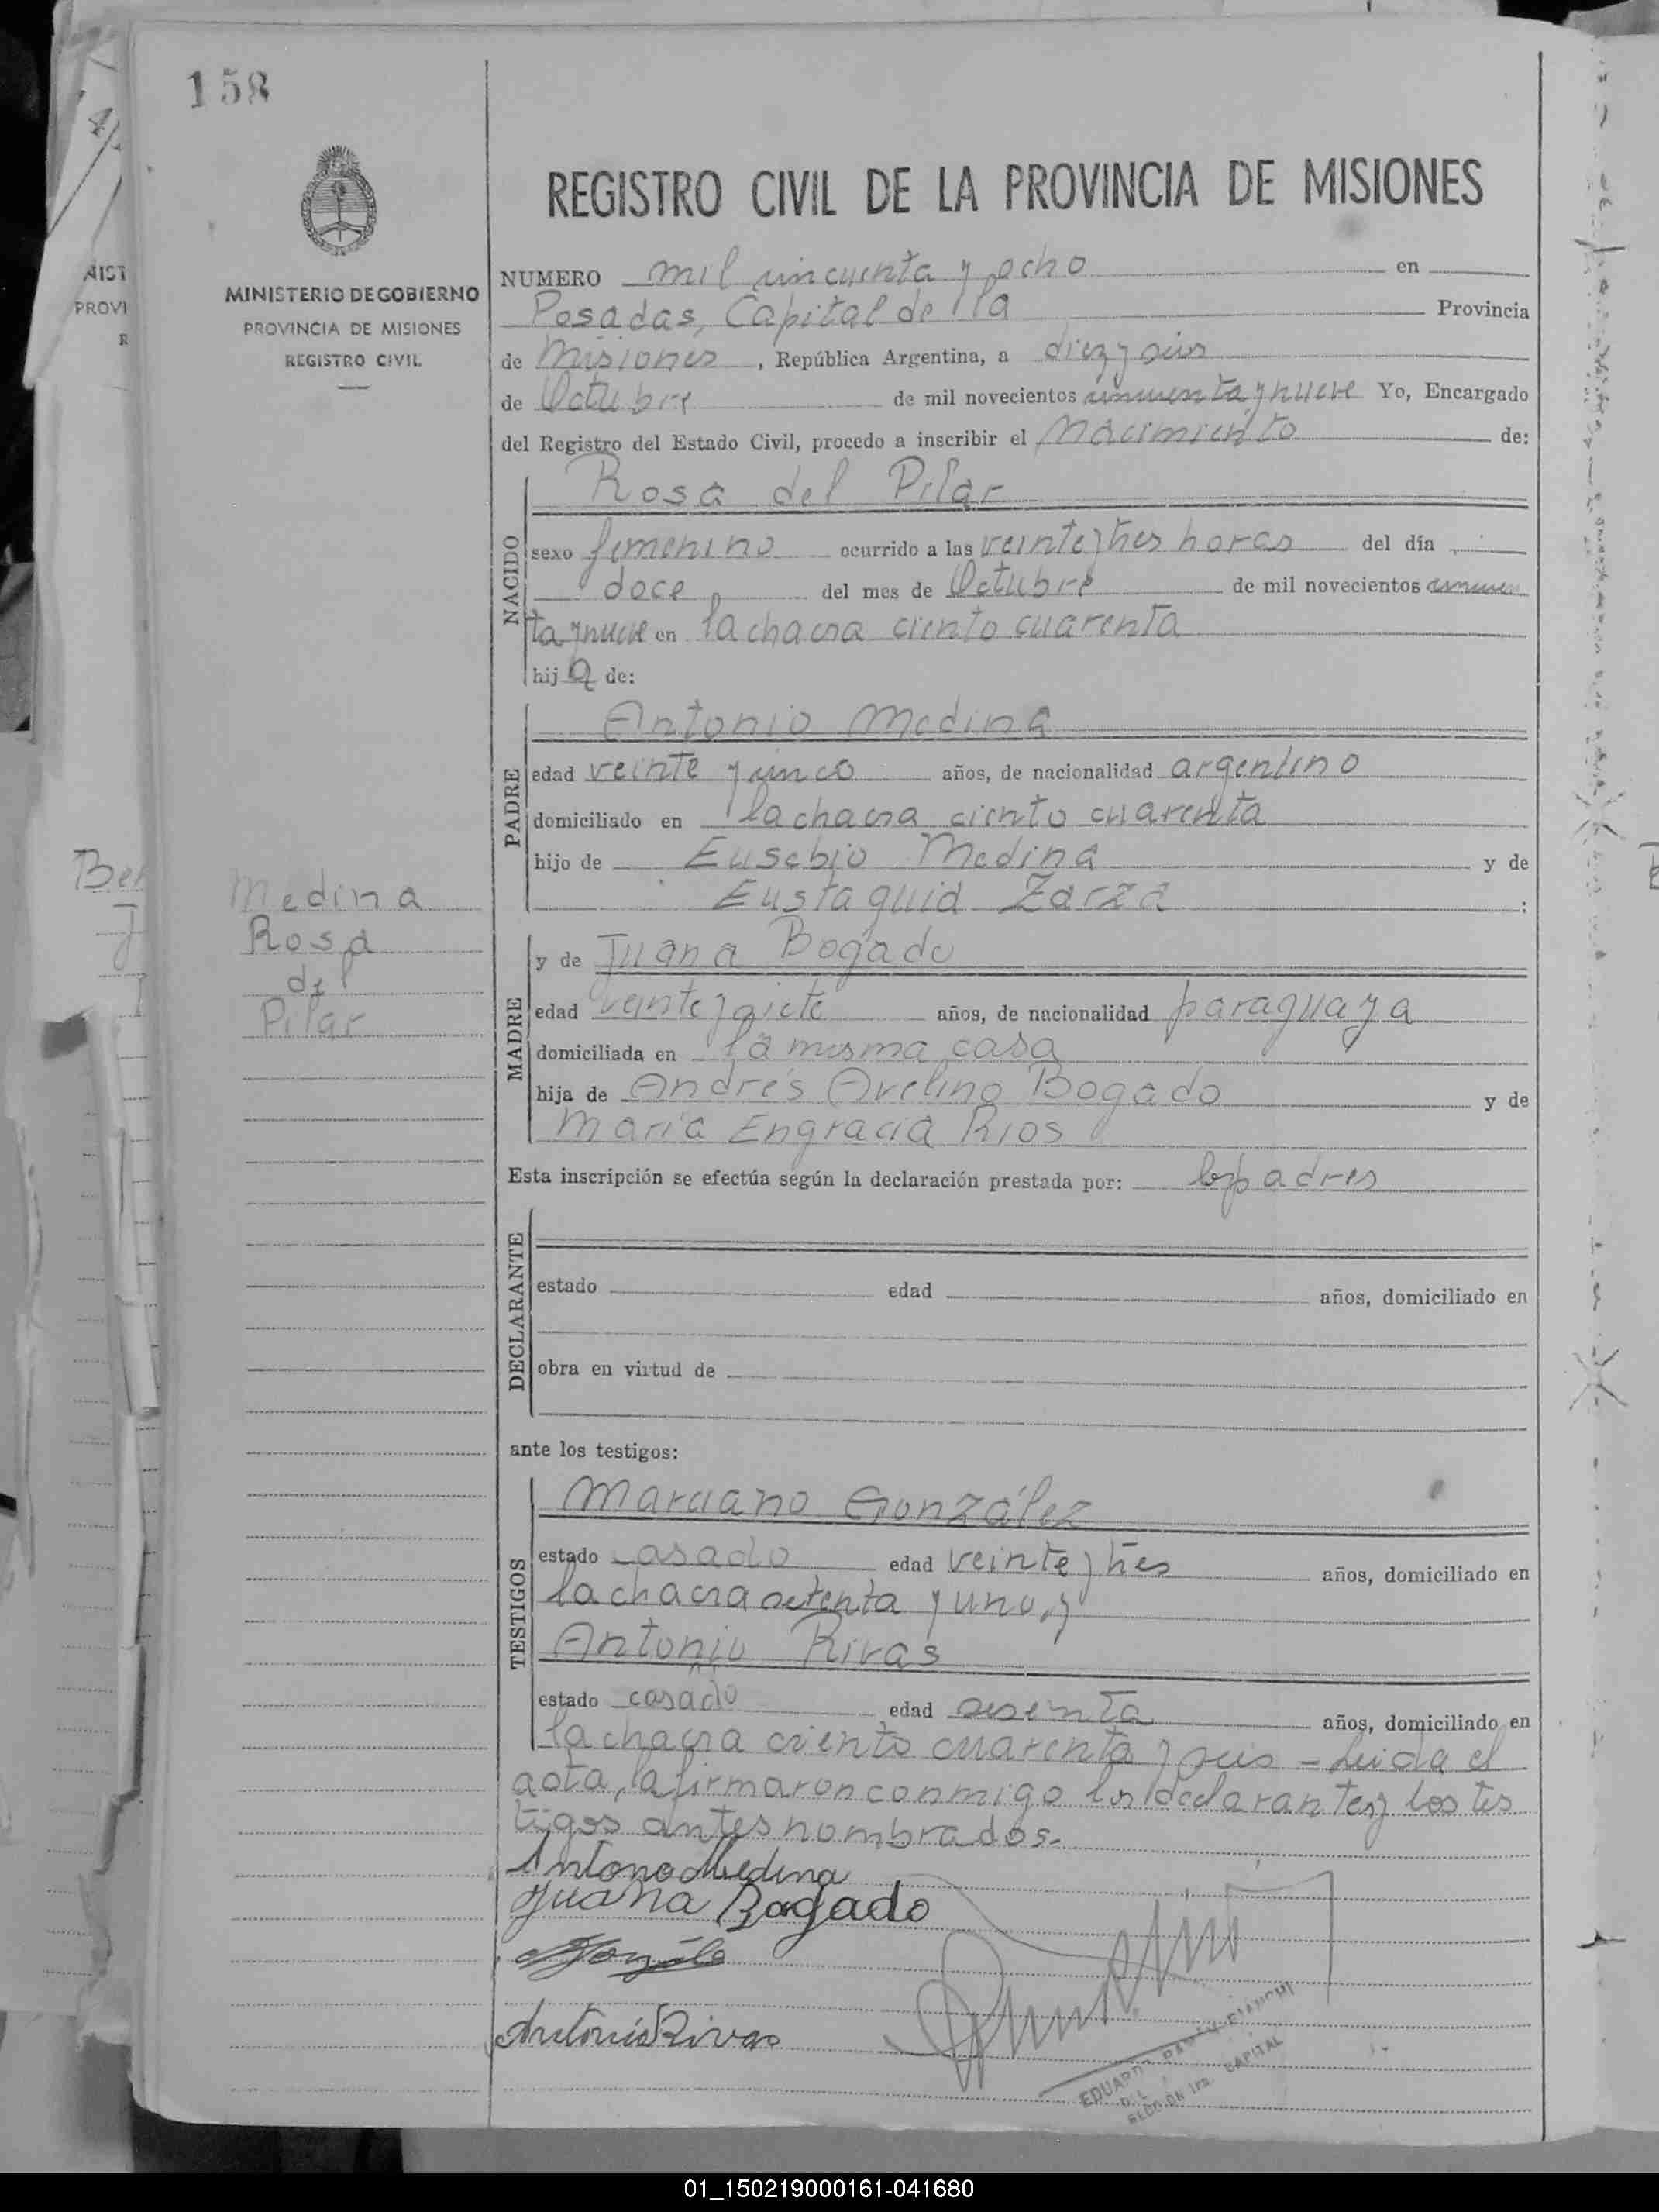 158
MINISTERIO DE GOBIERNO
PROVINCIA DE MISIONES
REGISTRO CIVIL
REGISTRO CIVIL DE LA PROVINCIA DE MISIONES
NUMERO mil cincuenta y ocho en
Posadas, Capital de la Provincia
de Misiones, República Argentina, a diez y seis
de Octubre de mil novecientos cincuenta y nueve Yo, Encargado
del Registro del Estado Civil, procedo a inscribir el Nacimiento de:
NACIDO
Rosa del Pilar
sexo femenino ocurrido a las veinte y tres horas del día
doce del mes de Octubre de mil novecientos cincuen
ta y nueve en la chacra ciento cuarenta
hija de:
PADRE
Antonio Medina
edad veinte y cinco años, de nacionalidad argentino
domiciliado en la chacra ciento cuarenta
hijo de Eusebio Medina y de
Eustaquia Zarza :
Medina
Rosa
del
Pilar
MADRE
y de Juana Bogado
edad veinte y siete años, de nacionalidad paraguaya
domiciliada en la misma casa
hija de Andrés Avelino Bogado y de
María Engracia Rios
Esta inscripción se efectúa según la declaración prestada por: los padres
DECLARANTE
estado edad años, domiciliado en
obra en virtud de
ante los testigos:
TESTIGOS
Marciano González
estado casado edad veinte y tres años, domiciliado en
la chacra setenta y uno, y
Antonio Rivas
estado casado edad sesenta años, domiciliado en
la chacra ciento cuarenta y seis - Leída el
acta, la firmaron conmigo los declarantes y los tes
tigos antes nombrados.-
Antonio Medina
Juana Bogado
Antonio Rivas
EDUARDO RAMÓN BIANCHI
SECCIÓN 1ra. CAPITAL
01_150219000161-041680